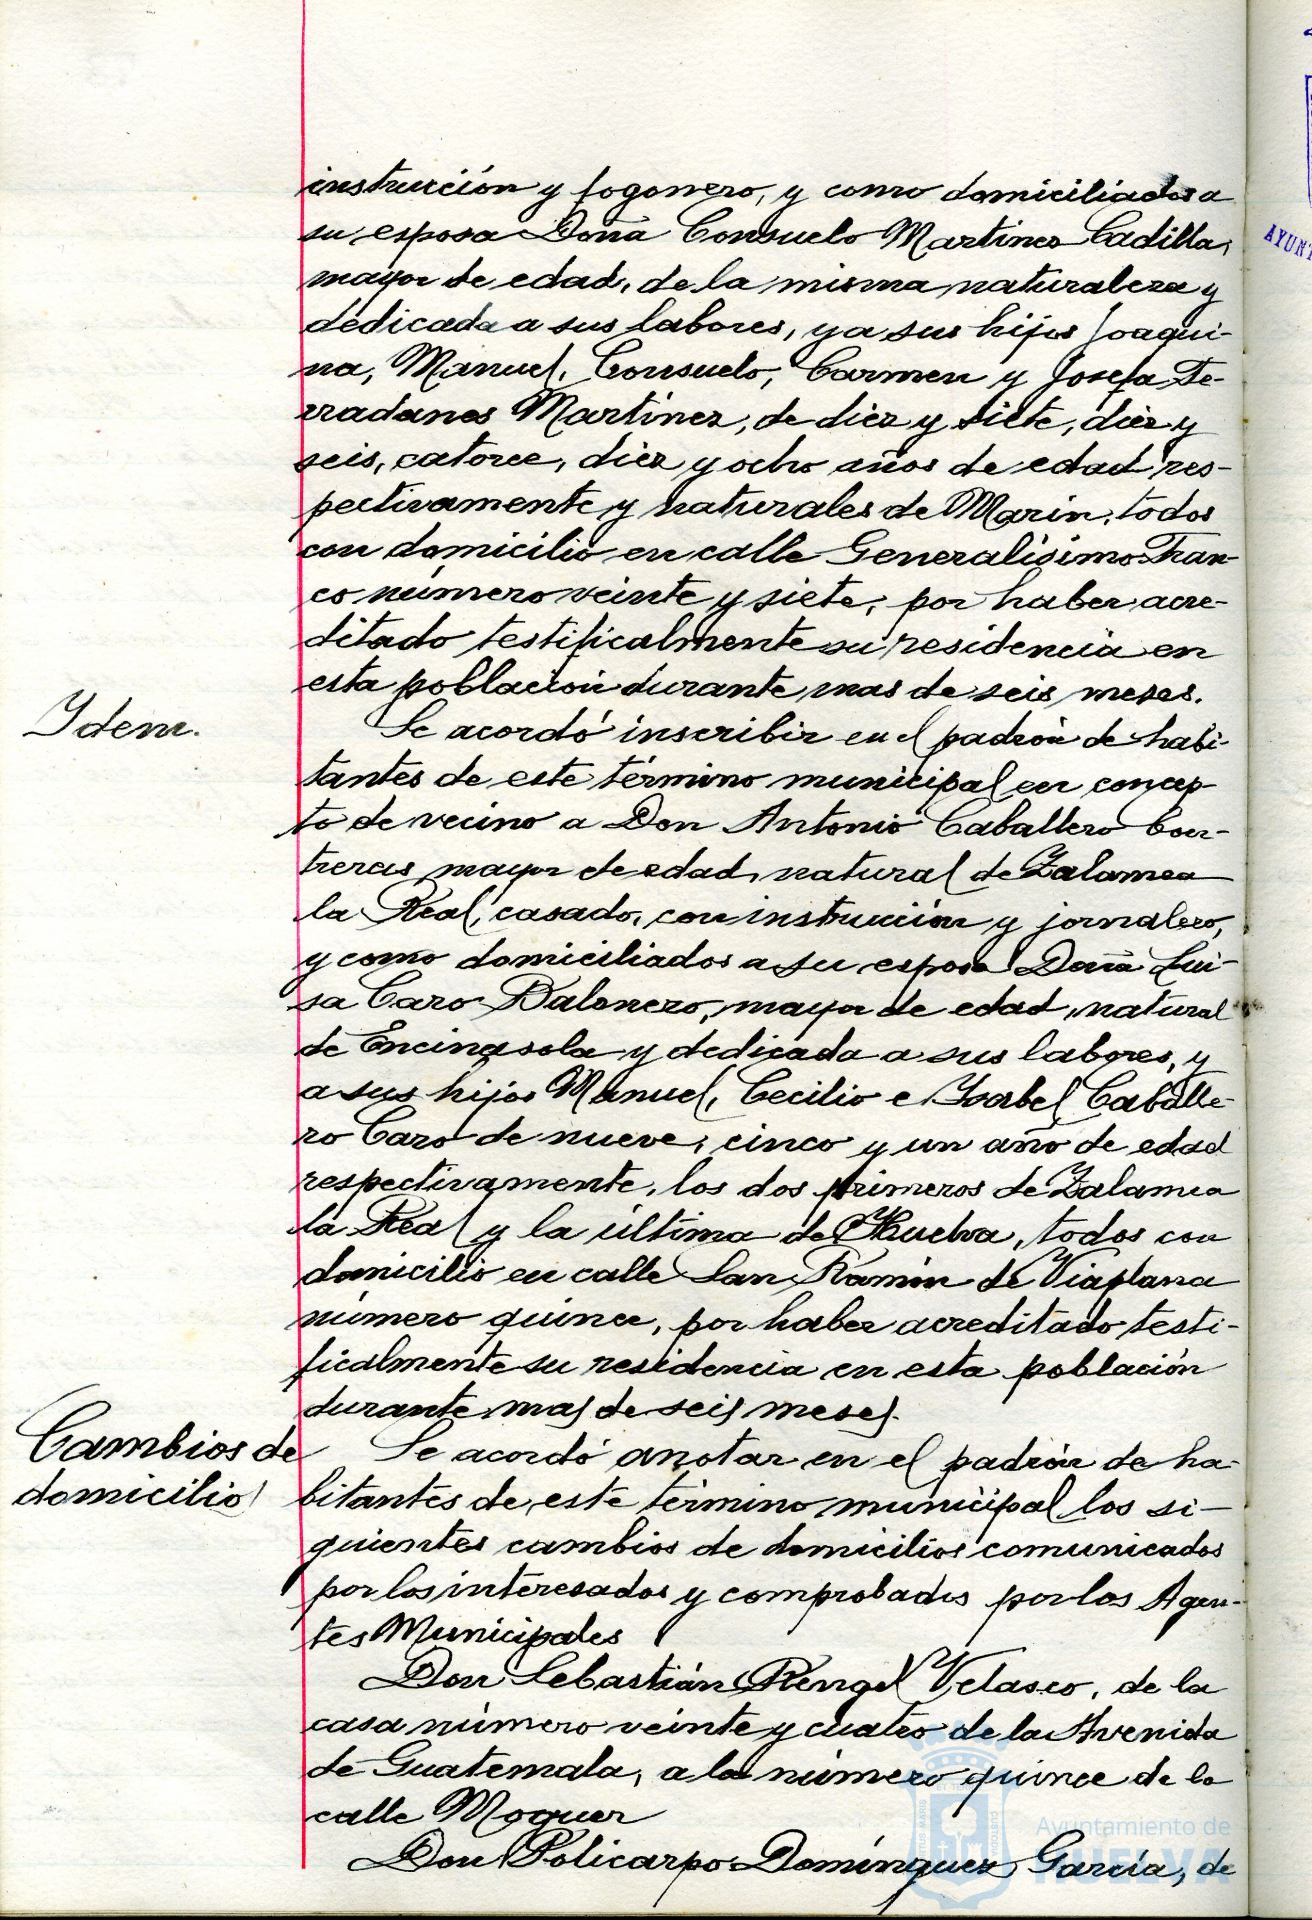 instrucción y fogonero, y como domiciliados a
su esposa Doña Consuelo Martinez Cadilla,
mayor de edad, de la misma naturaleza y
dedicada a sus labores, y a sus hijos Joaqui-
na, Manuel, Consuelo, Carmen y Josefa Fe-
rradanes Martínez, de diez y siete, diez y
seis, catorce, diez y ocho años de edad res-
pectivamente y naturales de Marin, todos
con domicilio en calle Generalísimo Fran-
co número veinte y siete, por haber acre-
ditado testificalmente su residencia en
esta población durante mas de seis meses.
Ydem.
Se acordó inscribir en el padrón de habi-
tantes de este término municipal en concep-
to de vecino a Don Antonio Caballero Con-
treras mayor de edad, natural de Zalamea
la Real, casado, con instrucción y jornalero,
y como domiciliados a su esposa Doña Lui-
sa Caro Balonero, mayor de edad, natural
de Encinasola y dedicada a sus labores, y
a sus hijos Manuel, Cecilio e Ysabel Caballe-
ro Caro de nueve, cinco y un año de edad
respectivamente, los dos primeros de Zalamea
la Real y la última de Huelva, todos con
domicilio en calle San Ramón de Viaplana
número quince, por haber acreditado testi-
ficalmente su residencia en esta población
durante mas de seis meses.
Cambios de
domicilio
Se acordó anotar en el padrón de ha-
bitantes de este término municipal los si-
guientes cambios de domicilios comunicados
por los interesados y comprobados por los Agen-
tes Municipales
Don Sebastián Rengel Velasco, de la
casa número veinte y cuatro de la Avenida
de Guatemala, a la número quince de la
calle Moguer
Don Policarpo Domínguez García, de
AYUNT
Ayuntamiento de
HUELVA